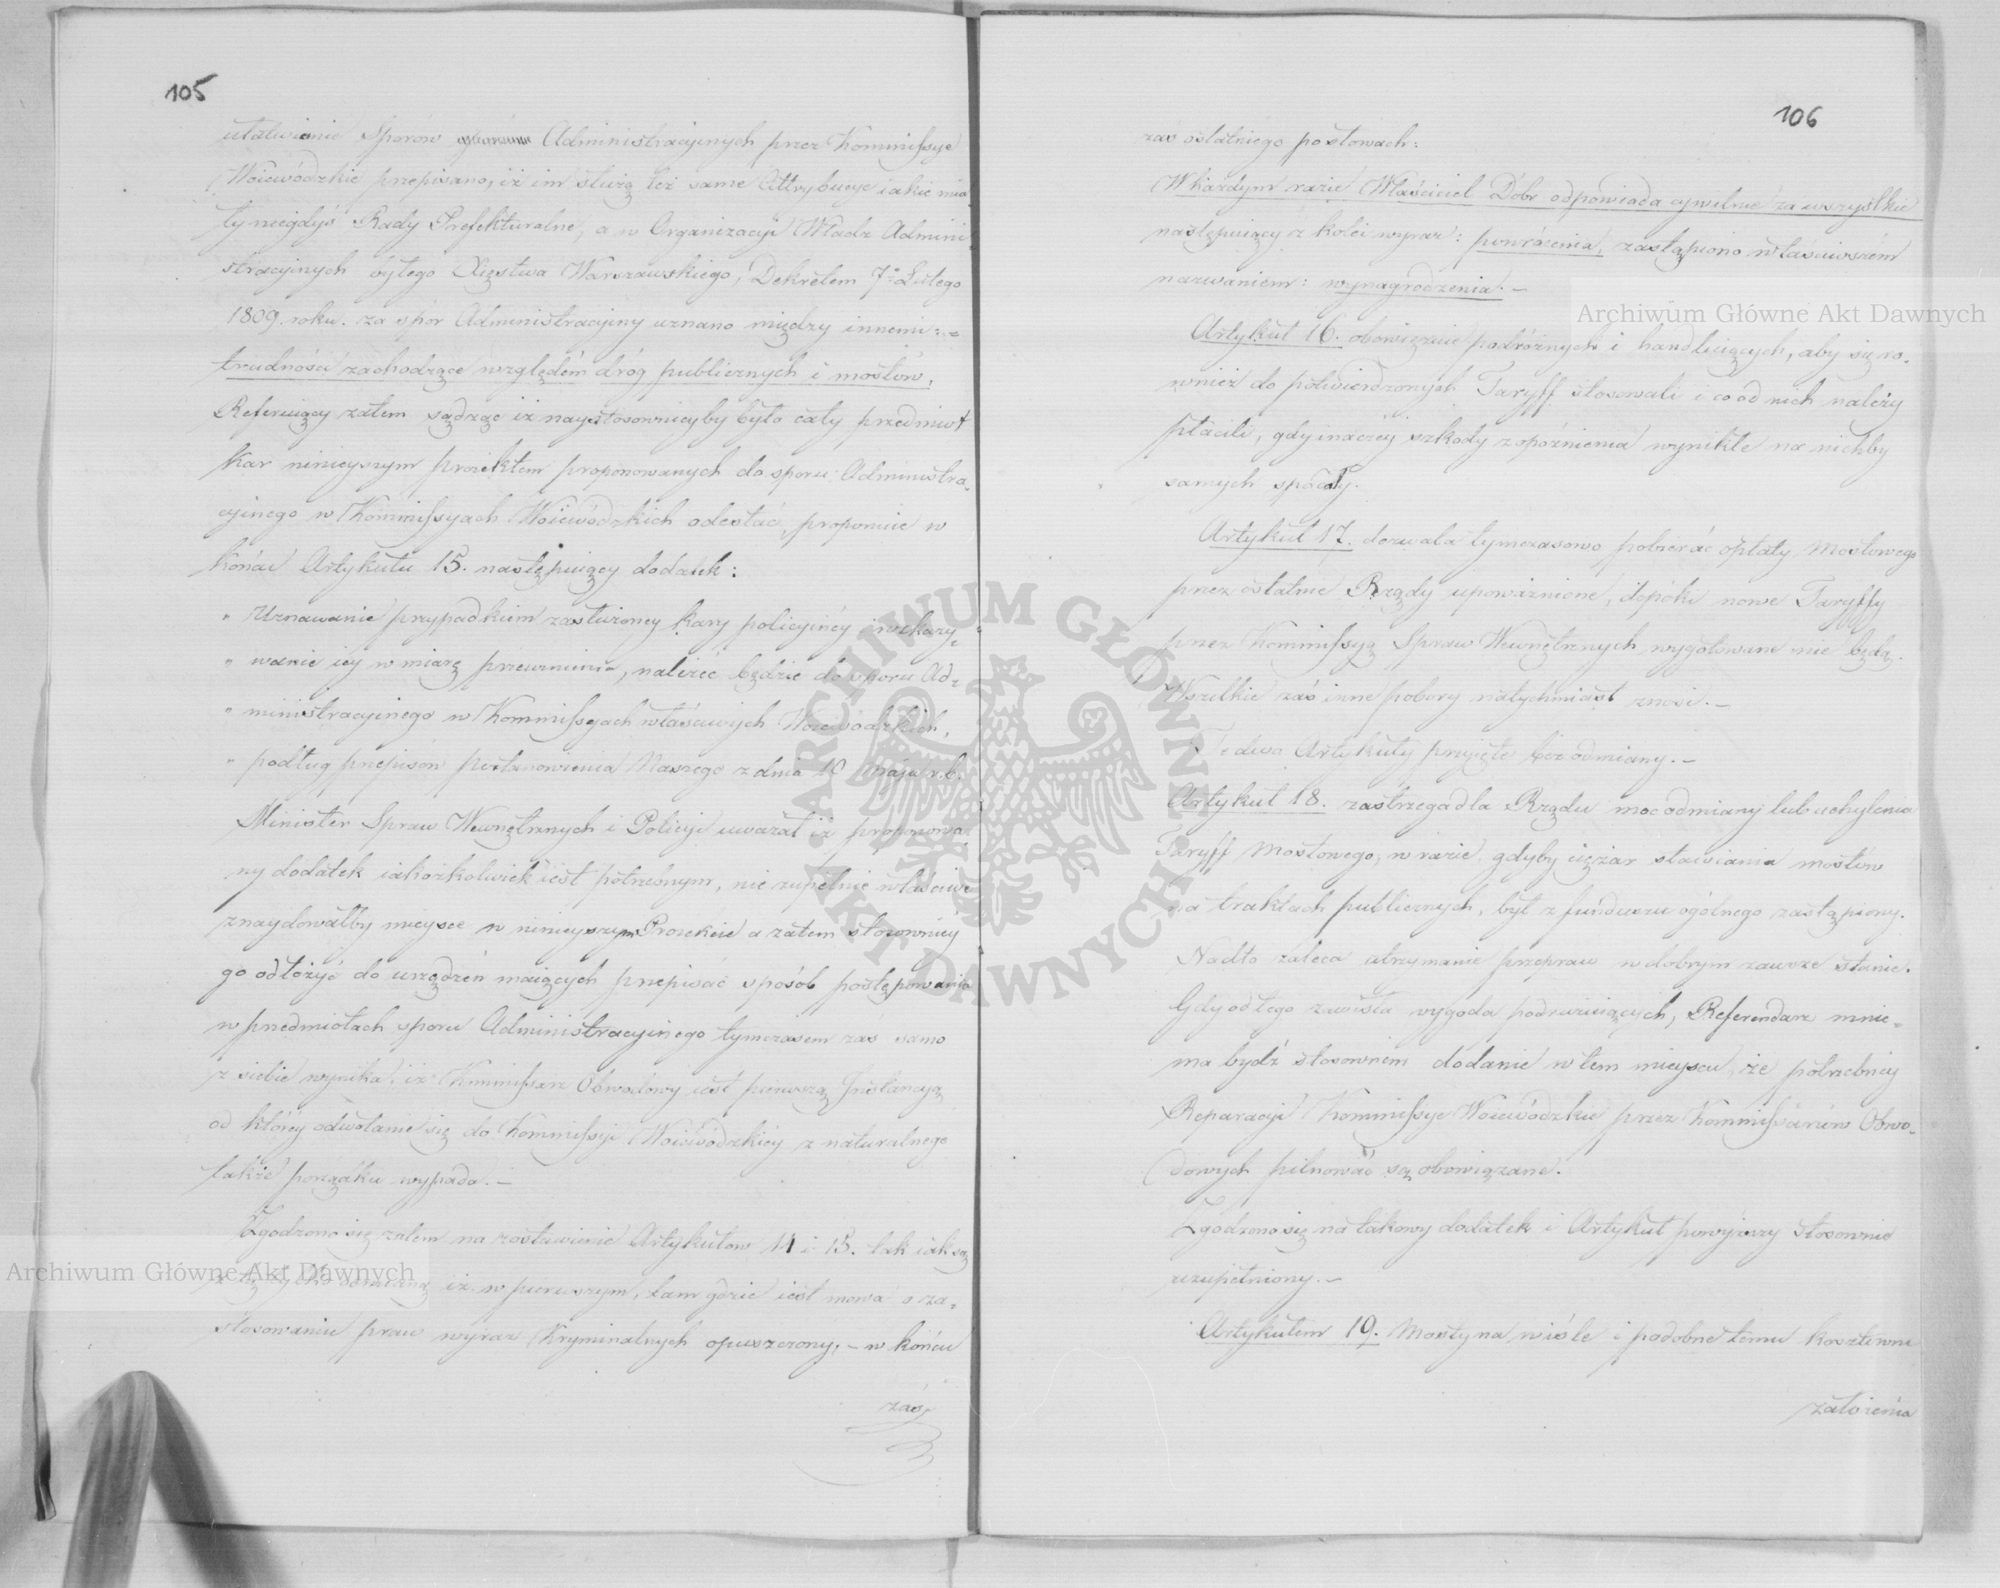 105
ułatwienie Sporów Administracyinych przez Kommissye
Woiewódzkie przepisano, iż im służą też same Attrybucye iakie mia
ły niegdyś Rady Prefekturalne, a w Organizacyi Władz Admini
stracyinych byłego Xięstwa Warszawskiego, Dekretem 7º Lutego
1809. roku. za spór Administracyiny uznano między innemi:=
trudności zachodzące względem dróg publicznych i mostów,
Referuiący zatem sądząc iż naystosowniéyby było cały przedmiot
kar ninieyszym proiektem proponowanych do sporu Administra=
cyinego w Kommissyach Woiewódzkich odesłać, proponuie w
końcu Artykułu 15. następuiący dodatek:
" Uznawanie przypadkiem zasłużoney kary policyinéy i wskazy=
" wanie iey w miarę przewinienia, należeć będzie do sporu Ad=
" ministracyinego w Kommissyach właściwych Woiewódzkich,
" podług przepisów postanowienia Naszego z dnia 10 maja r. b.
Minister Spraw Wewnętrznych i Policyi uważał iż proponowa
ny dodatek iakożkolwiek iest potrzebnym, nie zupełnie właściwe
znaydowałby mieysce w ninieyszym Proiekcie a zatem stosowniéy
go odłożyć do urządzeń maiących przepisać sposób postępowania
w przedmiotach sporu Administracyinego tymczasem zaś samo
z siebie wynika, iż Kommissarz Obwodowy iest pierwszą Instancyą
od któréy odwołanie się do Kommissyi Woiewódzkiéy z naturalnego
także porządku wypada.—
Zgodzono się zatem na zostawienie Artykułów 14 i 15. tak iak są
z tą tylko odmianą iż w pierwszym, tam gdzie iest mowa o za=
stosowaniu praw wyraz Kryminalnych opuszczony,— w końcu
zaś
106
zaś ostatniego po słowach:
W każdym razie Właściciel Dóbr odpowiada cywilnie za wszystkie
następuiący z kolei wyraz: powrócenia, zastąpiono właściwszém
nazwaniem: wynagrodzenia.—
Artykuł 16. obowięzuie podróżnych i handluiących, aby się ró=
wnież do potwierdzonych Taryff stosowali i co od nich należy
płacili, gdyż inaczéy szkody z opóźnienia wynikłe na nichby
samych spadały.
Artykuł 17. dozwala tymczasowo pobierać opłaty Mostowego
przez ostatnie Rządy upoważnione, dopóki nowe Taryffy
przez Kommissyą Spraw Wewnętrznych wygotowane nie będą.
Wszelkie zaś inne pobory natychmiast znosi.—
Te dwa Artykuły przyięte bez odmiany.—
Artykuł 18. zastrzega dla Rządu moc odmiany lub uchylenia
Taryff Mostowego, w razie gdyby ciężar stawiania mostów
na traktach publicznych, był z funduszu ogólnego zastąpiony.
Nadto zaleca utrzymanie przepraw w dobrym zawsze stanie.
Gdy od tego zawisła wygoda podróżuiących, Referendarz mnie=
ma bydź stosowném dodanie w tém mieyscu, że potrzebnéy
Reparacyi Kommissye Woiewódzkie przez Kommissarzów Obwo=
dowych pilnować są obowiązane.
Zgodzono się na takowy dodatek i Artykuł powyższy stosownie
uzupełniony.—
Artykułem 19. Mosty na wiśle i podobne temu kosztowne
założenia
Archiwum Główne Akt Dawnych
Archiwum Główne Akt Dawnych
ARCHIWUM GŁÓWNE AKT DAWNYCH